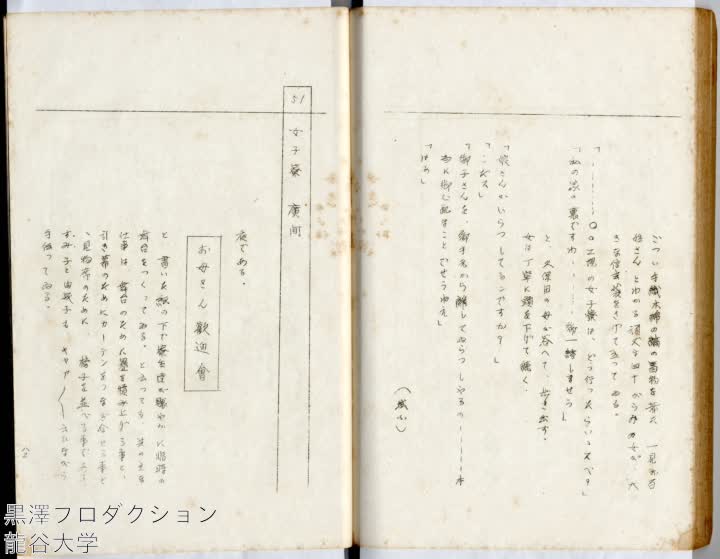 ごつい手織木綿の縞の着物を着た 一見お百
姓さんとわかる頑丈な四十がらみの女が、大
きな信玄袋をさげて立つてゐる。
「………〇〇工場の女子寮は、どう行つたらいゝスペ？」
「私の涙の裏ですわ………御一緒しませう」
と、久保田の母が答へて、歩き出す。
女は丁寧に頭を下げて続く。
「娘さんがいらつしてるンですか？」
「ンだス」
「御子さんを、御手元から離してゐらつしやるの――本
当に御心配なことでせうねえ」
「はあ」
（溶ム）
51 女子寮 廣間
夜である。
お母さん 歡迎會
と、書いた紙の下で寮生達が賑やかに臨時の
舞台をつくつてゐる。と云つても、其の主な
仕事は、舞台のために畳を積み上げる事と、
引き幕のためにカーテンをつなぎ合せる事と
、見物席のために 椅子を並べる事である。
すみ子と由紀子も キヤア〳〵云ひながら
手伝つてゐる。
黒澤プロダクション
龍谷大学